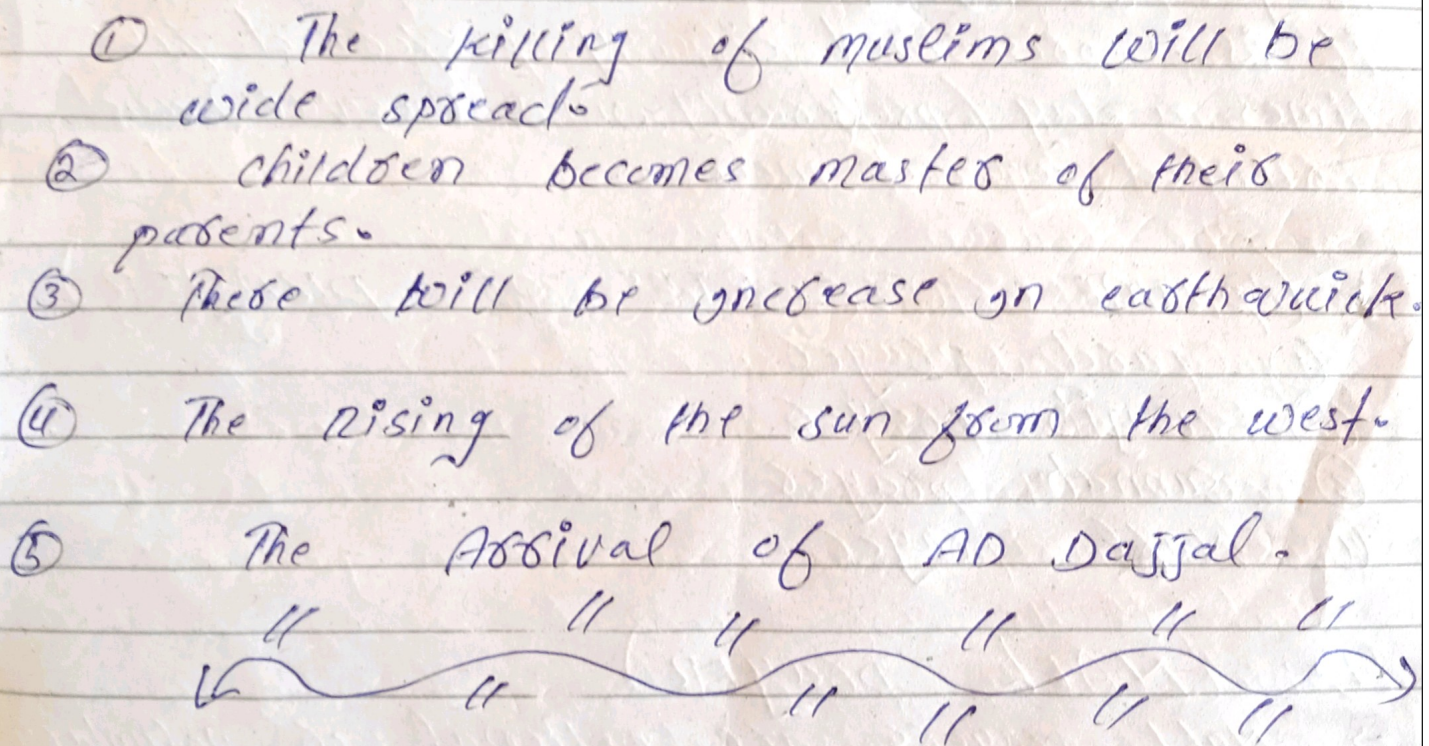 ① The Killing of muslims will be
wide spread.
② children becomes master of their
parents.
③ There will be increase in earthquick.
④ The Rising of the sun from the west.
⑤ The Arrival of AD Dajjal.